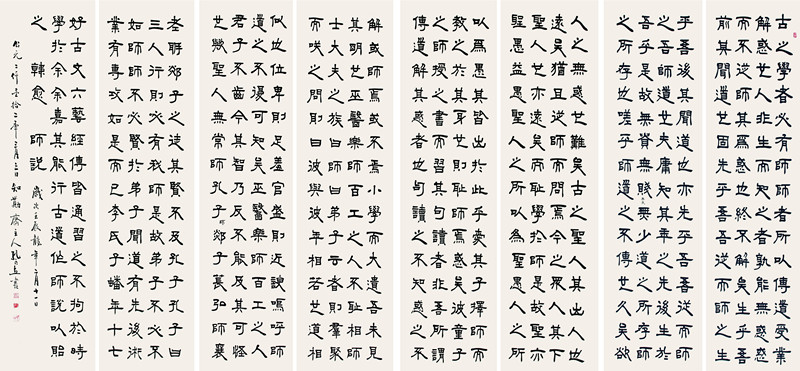 古之學者必有師師者所以傳道受業
解惑也人非生而知之者孰能無惑惑
而不從師其爲惑也終不解矣生乎吾
前其聞道也固先乎吾吾從而師之生
乎吾後其聞道也亦先乎吾吾從而師
之吾師道也夫庸知其年之先後生於
吾乎是故無貴無賤無長無少道之所存師
之所存也嗟乎師道之不傳也久矣欲
人之無惑也難矣古之聖人其出人也
遠矣猶且從師而問焉今之衆人其下
聖人也亦遠矣而恥學於師是故聖益
聖愚益愚聖人之所以爲聖愚人之所
以爲愚其皆出於此乎愛其子擇師而
教之於其身也則恥師焉惑矣彼童子
之師授之書而習其句讀者非吾所謂
傳道解其惑者也句讀之不知惑之不
解或師焉或不焉小學而大遺吾未見
其明也巫醫樂師百工之人不恥相師
士大夫之族曰師曰弟子云者則羣聚
而笑之問則曰彼與彼年相若也道相
似也位卑則足羞官盛則近諛嗚呼師
道之不復可知矣巫醫樂師百工之人
君子不齒今其智乃反不能及其可怪
也歟聖人無常師孔子師郯子萇弘師襄
老聃郯子之徒其賢不及孔子孔子曰
三人行則必有我師是故弟子不必不
如師師不必賢於弟子聞道有先後術
業有專攻如是而已李氏子蟠年十七
好古文六藝經傳皆通習之不拘於時
學於余余嘉其能行古道作師說以貽
之 韓愈 師說 歲次壬辰龍年二月十一日
公元二仟零拾二年三月三日 齋主人 書